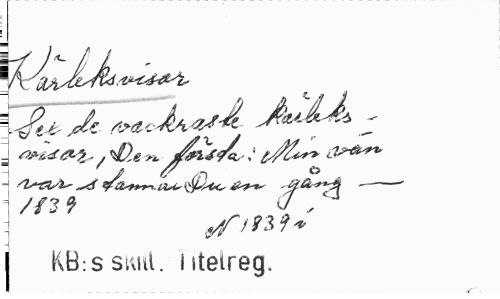 Kärleksvisor
Sex de vackraste kärleks-
visor, Den första: Min vän
var stannar Du en gång —
1839
N 1839 i
KB:s skill. Titelreg.